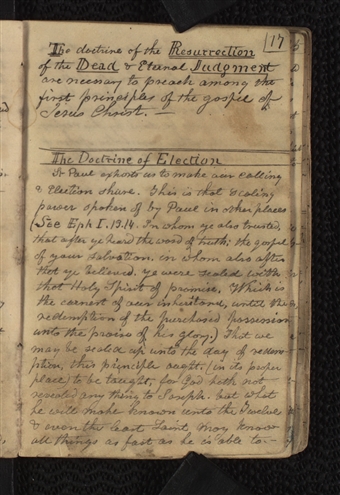 17
The doctrine of the Resurrection
of the Dead & Eternal Judgment
are necessary to preach among the
first principles of the gospel of
Jesus Christ. —
The Doctrine of Election
St Paul exhorts us to make our calling
& Election shure. This is that sealing
power spoken of by Paul in other places
(See Eph I. 13.14. In whom ye also trusted,
that after ye heard the word of truth; the gospel
of your salvation. in whom also after
that ye believed. ye were sealed with
that Holy Spirit of promise, Which is
the earnest of our inheritand, until the
redemption of the purchased possession
unto the praise of his glory.) That we
may be sealed up unto the day of redem-
ption, this principle ought, (in its proper
place) to be taught, for God hath not
revealed any thing to Joseph. but what
he will make known unto the Twelve
& even the least Saint may know
all things as fast as he is able to-